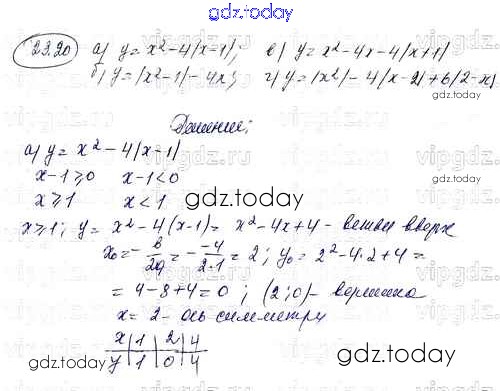 gdz.today
23.20 а) y = x² - 4|x-1|; в) y = x² - 4x - 4|x+1|
б) y = |x²-1| - 4x; г) y = |x²| - 4|x-2| + 6|2-x|
Решение:
а) y = x² - 4|x-1|
x-1≥0 x-1<0
x≥1 x<1
gdz.today
x≥1; y = x² - 4(x-1) = x² - 4x + 4 - ветви вверх
x₀ = -b/2a = - -4/2·1 = 2; y₀ = 2² - 4·2 + 4 =
= 4 - 8 + 4 = 0; (2;0) - вершина
x = 2 - ось симметри
x | 1 | 2 | 4
y | 1 | 0 | 4
gdz.today